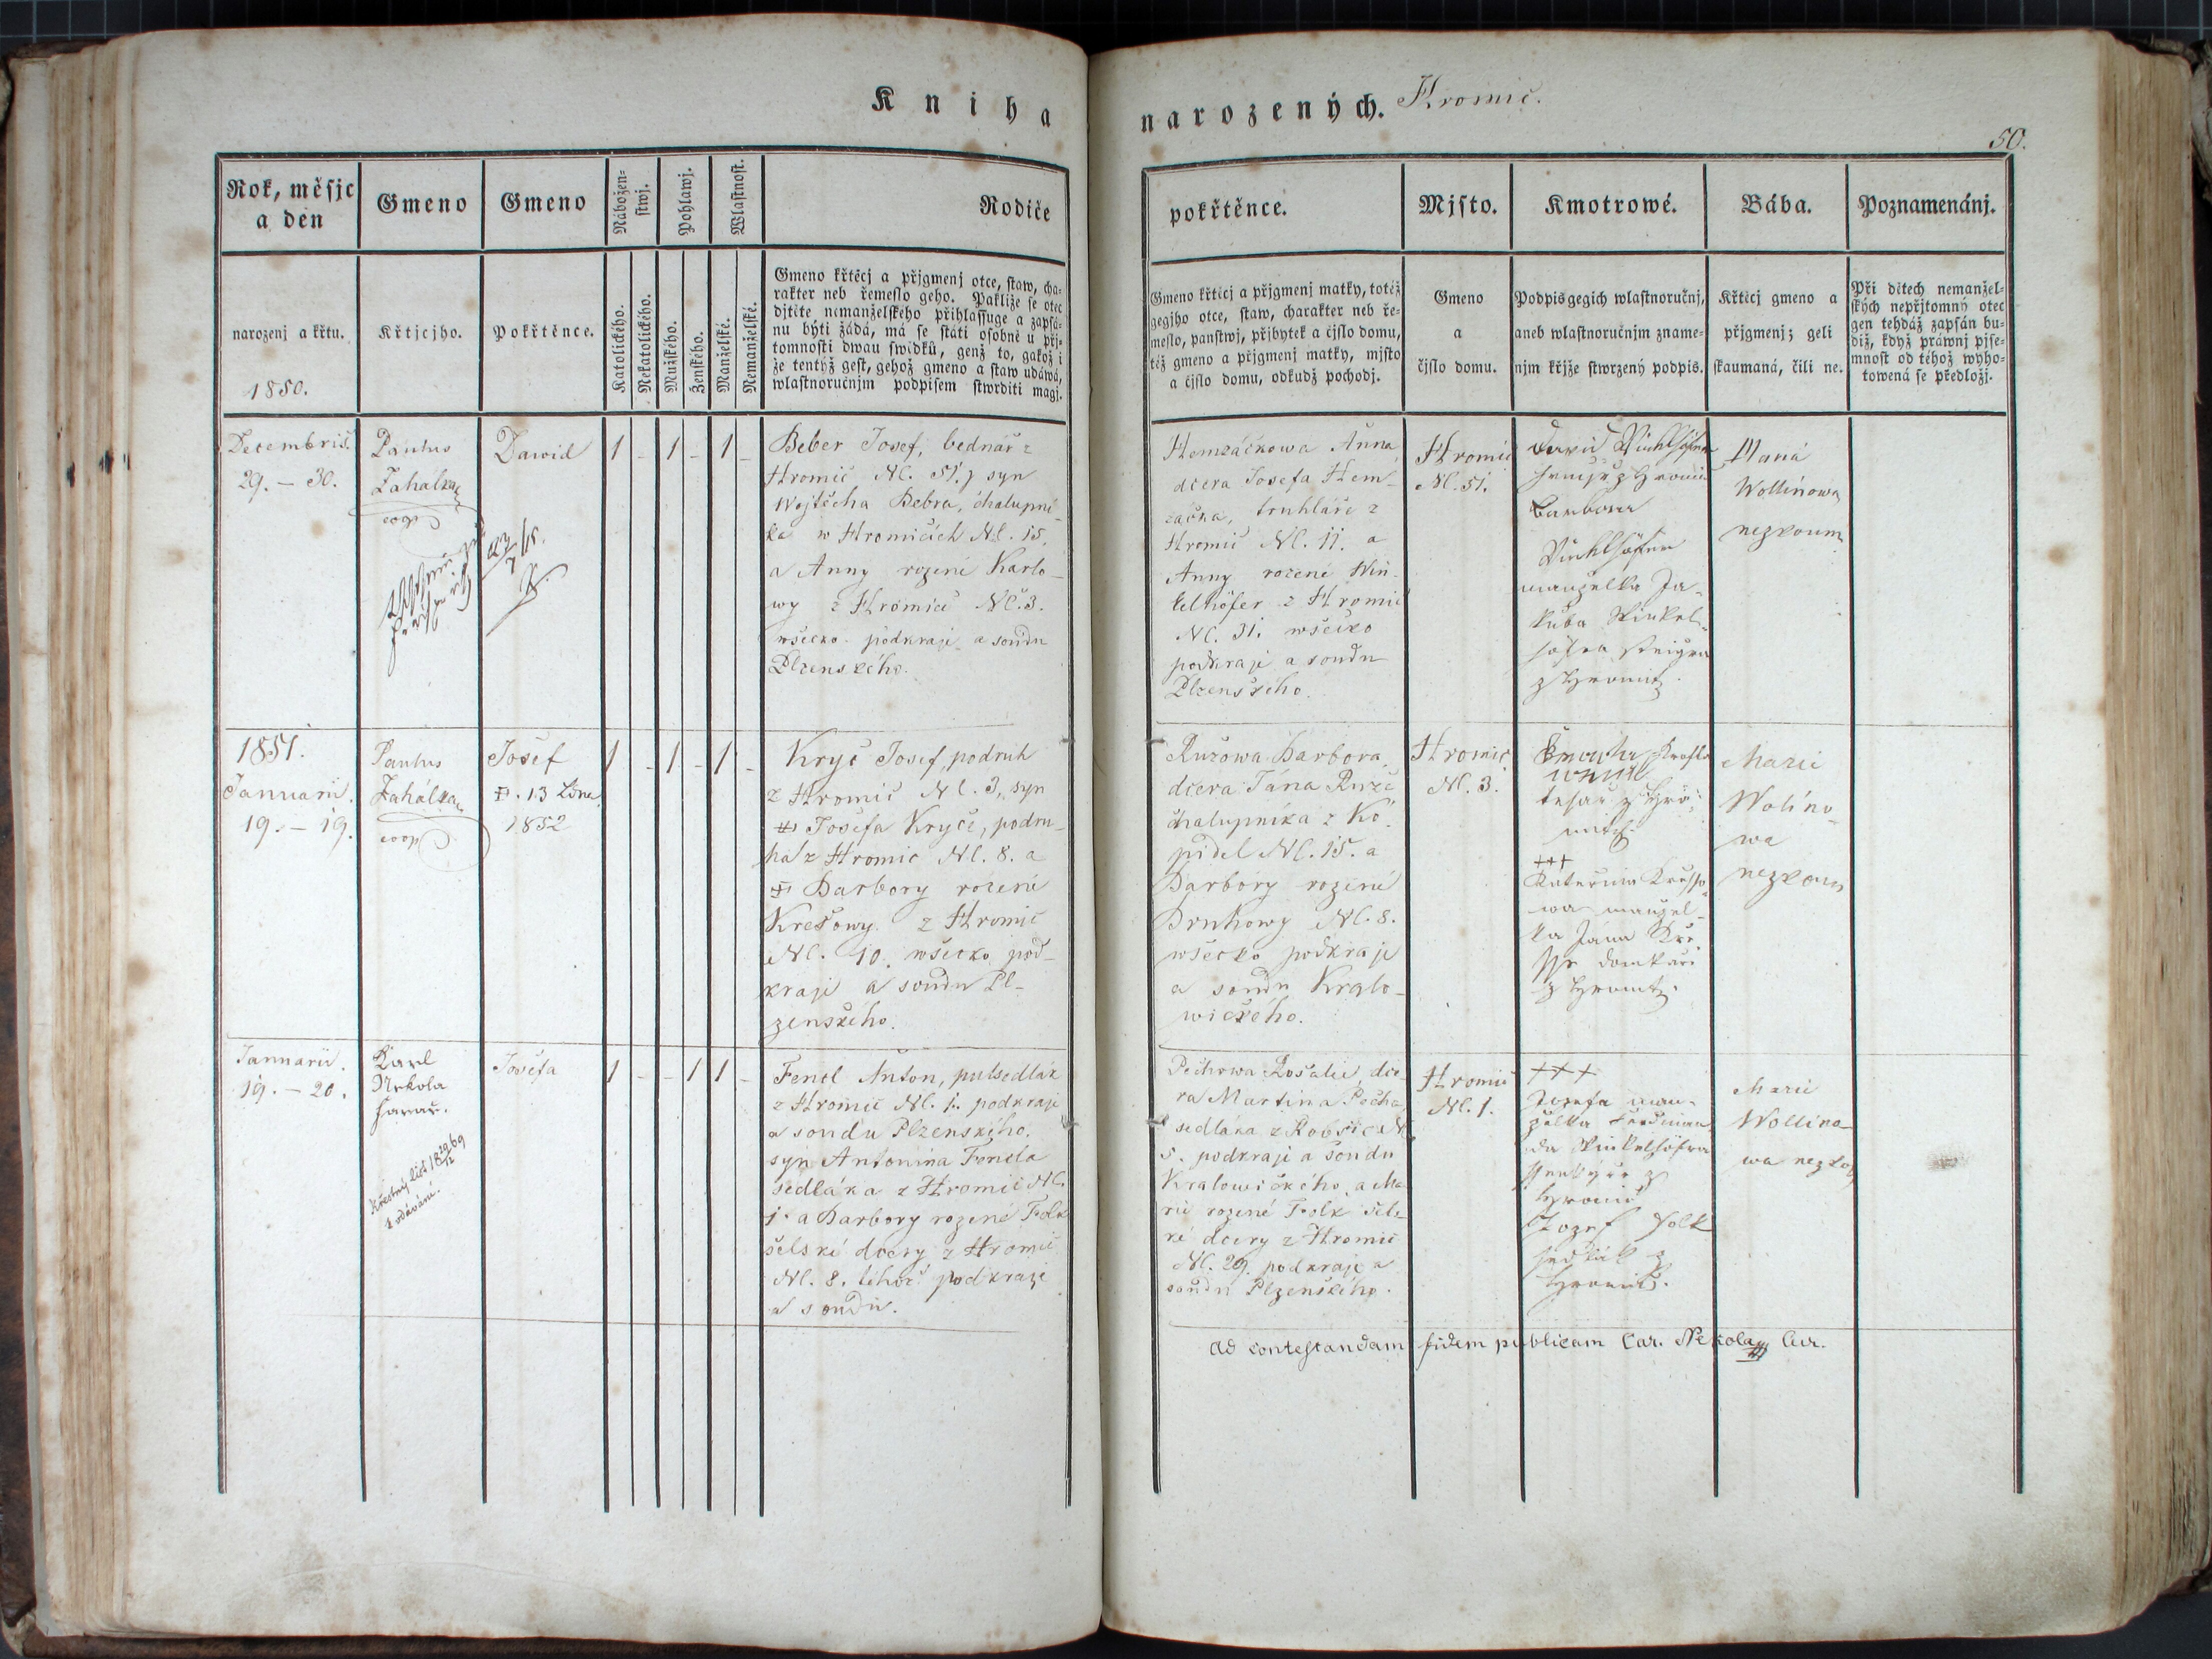 Kniha
narozených. Hromič.
50.
Rok, měsjc
a den
narozenj a křtu.
1850.
Gmeno
Křtjcjho.
Gmeno
Pokřtěnce.
Nábožen-
stwj.
Katolického.
Nekatolického.
Pohlawj.
Mužského.
Ženského.
Wlastnost.
Manželské.
Nemanželské.
Rodiče
Gmeno křtěcj a přjgmenj otce, staw, cha-
rakter neb řemeslo geho. Pakliže se otec
djtěte nemanželského přihlassuge a zapsá-
nu býti žádá, má se státi osobně u přj-
tomnosti dwau swědků, genž to, gakož i
že tentýž gest, gehož gmeno a staw udáwá,
wlastnoručnjm podpisem stwrditi magj.
pokřtěnce.
Gmeno křtěcj a přjgmenj matky, totéž
gegjho otce, staw, charakter neb ře-
meslo, panstwj, přjbytek a čjslo domu,
též gmeno a přjgmenj matky, mjsto
a čjslo domu, odkudž pochodj.
Mjsto.
Gmeno
a
čjslo domu.
Kmotrowé.
Podpis gegich wlastnoručnj,
aneb wlastnoručnjm zname-
njm křjže stwrzený podpis.
Bába.
Křtěcj gmeno a
přjgmenj; geli
skaumaná, čili ne.
Poznamenánj.
Při dětech nemanžel-
ských nepřjtomný otec
gen tehdáž zapsán bu-
diž, když práwnj pjse-
mnost od téhož wyho-
towená se předložj.
Decembris.
29. – 30.
Paulus
Zahálka
coop
Dawid
1 – 1 – 1 –
Beber Josef, bednář z
Hromič Nč. 51. syn
Wojtěcha Bebra, chalupní-
ka w Hromičích Nč. 15.
a Anny rozené Karlo-
wy z Hromič Nč. 3.
wšecko podkraje a soudu
Plzenského.
Hemzáčkowa Anna,
dcera Josefa Hem-
začka, truhláře z
Hromič Nč. 11. a
Anny rozené Win-
kelhöfer z Hromič
Nč. 31. wšecko
podkraje a soudu
Plzenského.
Hromič
Nč. 51.
Barbora
manželka Ja-
kuba Winkel-
höfra
z Hromitz.
Maria
Wollinowa
nezkoum
1851.
Januarii.
19. – 19.
Paulus
Zahálka
coop
Josef
13
1852
1 – 1 – 1 –
Kryč Josef, podruh
z Hromič Nč. 3, syn
Josefa Kryče, podru-
ha z Hromic Nč. 8. a
Barbory rozené
Krešowy z Hromič
Nč. 10. wšecko pod-
kraje a soudu Pl-
zenského.
Ružowa Barbora,
dcera Jána Ruže
chalupníka z Ko-
pidel Nč. 15. a
Barbory rozené
Druhowy Nč. 8.
wšecko podkraje
a soudu Kralo-
wického.
Hromič
Nč. 3.
tesař z Hro-
mitz
+++
Kateřina
wa manžel-
ka Jana
domkáře
z Hromitz.
Marie
Wolino-
wa
nezkoum
Januarii.
19. – 20.
Karel
Nekola
farář.
Křestný list 18 29/12 69
k oddávání.
Josefa
1 – – 1 1 –
Fencl Anton, pulsedlák
z Hromič Nč. 1. podkraje
a soudu Plzenského.
syn Antonína Fencla
sedláka z Hromič Nč.
1. a Barbory rozené Folk
selské dcery z Hromič
Nč. 8. téhož podkraje
a soudu.
Pechowa Rosalie, dce-
ra Martina Pecha,
sedláka z Robšic N.
5. podkraje a soudu
Kralowického, a Ma-
rie rozené Folk sels-
ké dcery z Hromič
Nč. 29. podkraje a
soudu Plzenského.
Hromič
Nč. 1.
+++
Josefa man-
želka Ferdinan-
da Winkelhöfra
z
Hromič
Jozef Folk
sedlák z
Hromitz.
Marie
Wollino-
wa nezkou
ad contestandam fidem publicam Car. Nekola Cur.